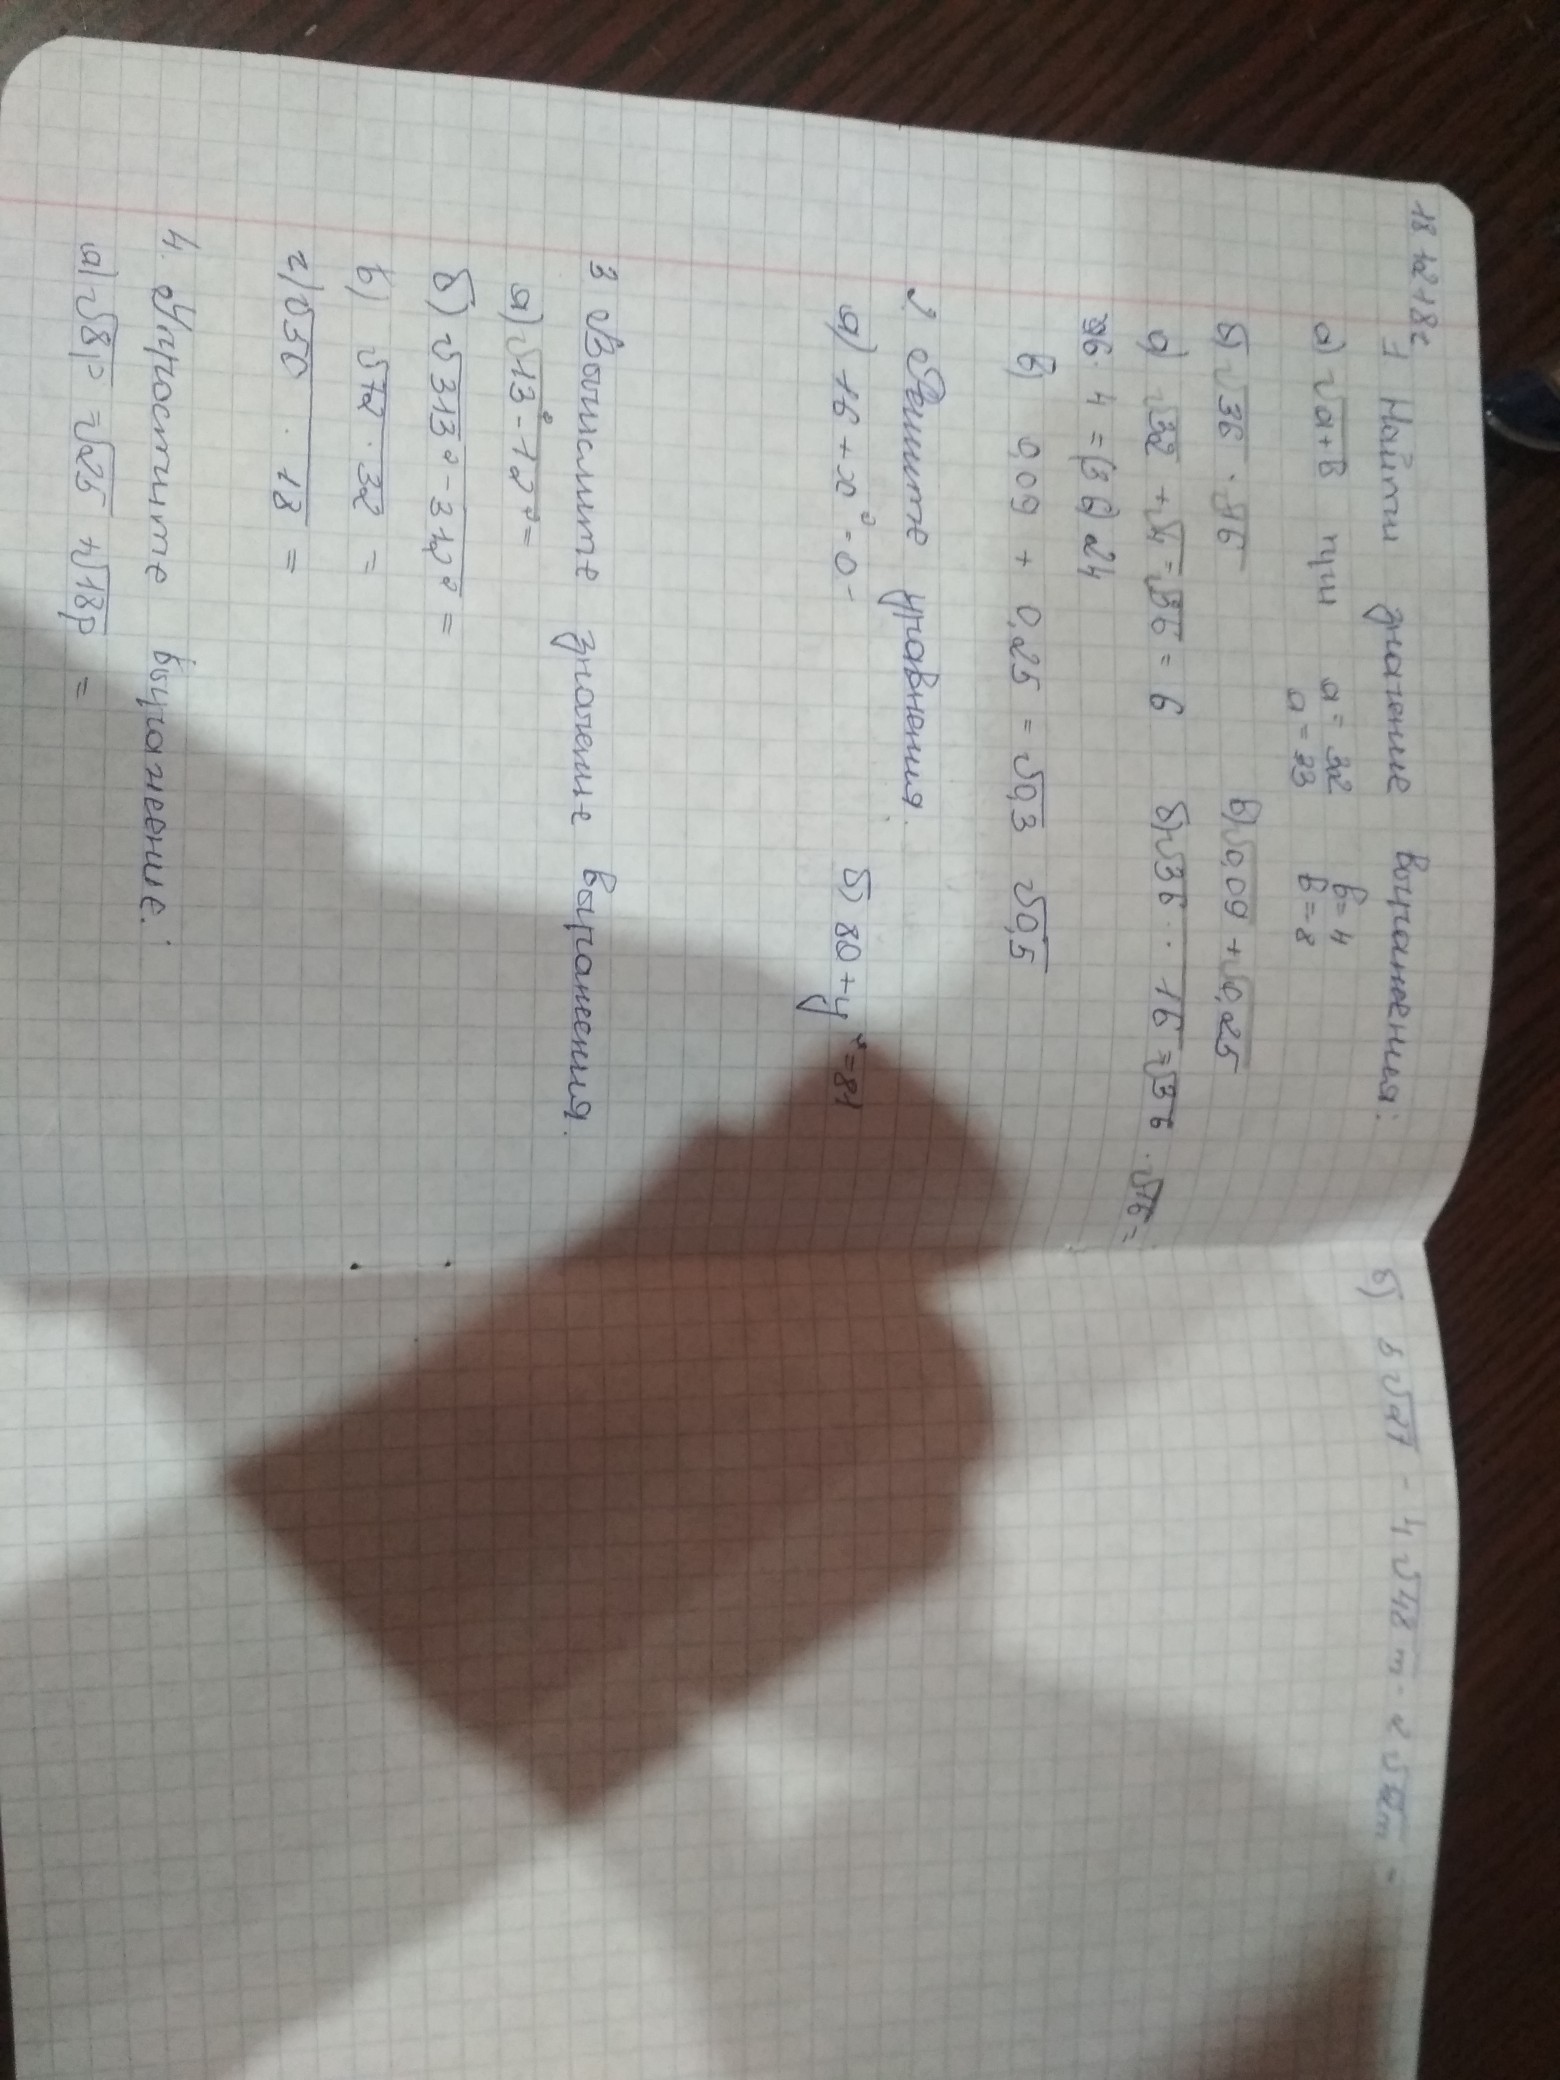 18 12 18г
1 Найти значение выражения:
а) √a+b при a = 32 b = 4
a = 33 b = -8
б) √36 · 16 в) √0,09 + √0,25
а) √32 + √4 = √36 = 6 б) √36 · 16 = √36 · √16 =
= 6 · 4 = 24
в) 0,09 + 0,25 = √0,3 √0,5
2 Решите уравнения.
а) 16 + x² = 0 б) 80 + y² = 81
3 Вычислите значение выражения.
а) √13² - 12² =
б) √313² - 312² =
в) √72 · 32 =
г) √50 · 18 =
4. Упростите выражение:
а) √8p = √25 + √18p =
б) √27 - 4√48m - 2√12m =